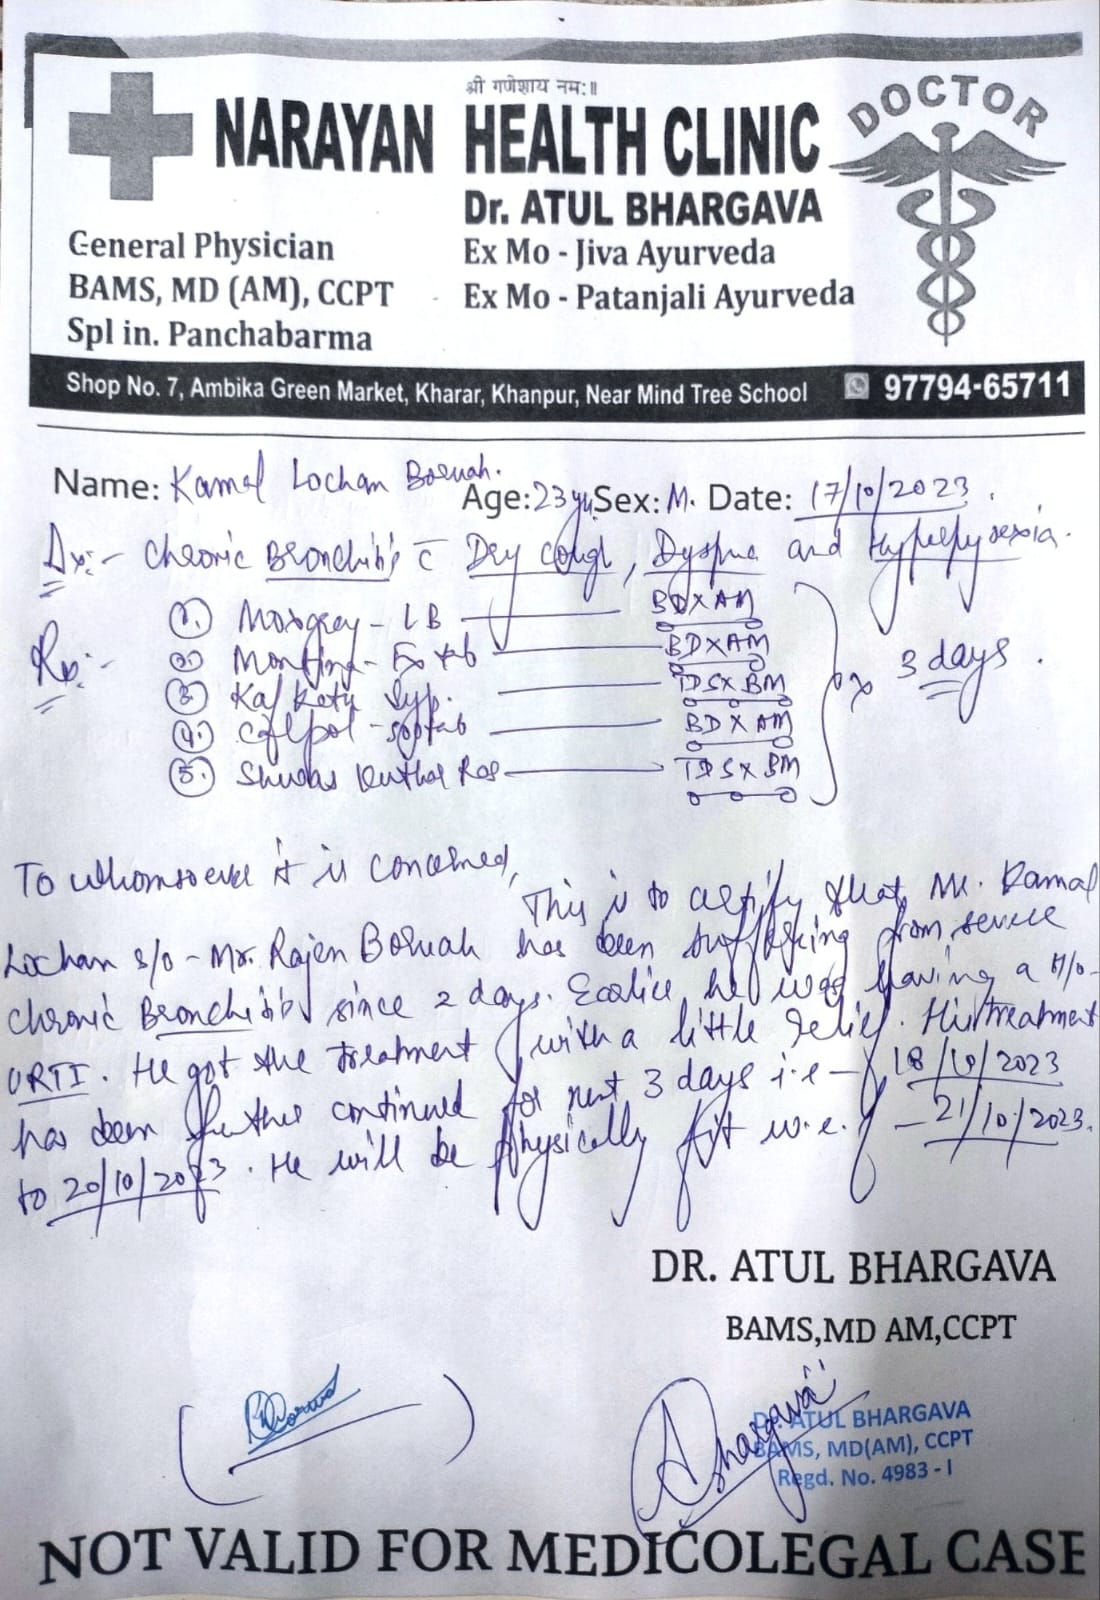 श्री गणेशाय नमः॥
DOCTOR
NARAYAN HEALTH CLINIC
Dr. ATUL BHARGAVA
General Physician
Ex Mo - Jiva Ayurveda
BAMS, MD (AM), CCPT
Ex Mo - Patanjali Ayurveda
Spl in. Panchabarma
Shop No. 7, Ambika Green Market, Kharar, Khanpur, Near Mind Tree School 97794-65711
Name: Kamal Lochan Boruah.
Age: 23 yr Sex: M. Date: 17/10/2023.
Dx:- Chronic Bronchitis c̄ Dry Cough, Dyspnea and Hyperpyrexia.
Rx:-
1. - LB BDXAM
2. - tab BDXAM
3. Syp. TDSXBM
4. Calpol - tab BDXAM
5. Shwas Kuthar Ras TDSXBM
x 3 days.
To whomsoever it is concerned,
This is to certify that Mr. Kamal
Lochan s/o - Mr. Rajen Boruah has been suffering from severe
chronic Bronchitis since 2 days. Earlier he was having a H/o-
URTI. He got the treatment with a little relief. His treatment
has been further continued for next 3 days i.e - 18/10/2023
to 20/10/2023. He will be physically fit w.e.f - 21/10/2023.
DR. ATUL BHARGAVA
BAMS,MD AM,CCPT
Bhargava
Dr. ATUL BHARGAVA
BAMS, MD(AM), CCPT
Regd. No. 4983 - I
NOT VALID FOR MEDICOLEGAL CASE